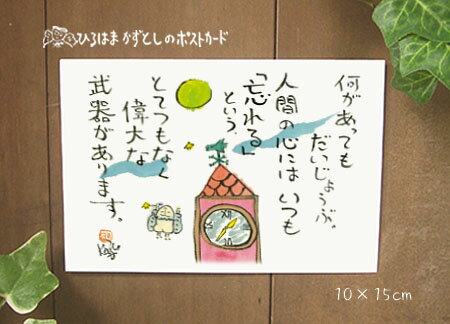 ひろはま かずとしのポストカード
何があっても
だいじょうぶ。
人間の心には いつも
「忘れる」
という、
とてつもなく
偉大な
武器があります。
XII
Kazu
10×15cm